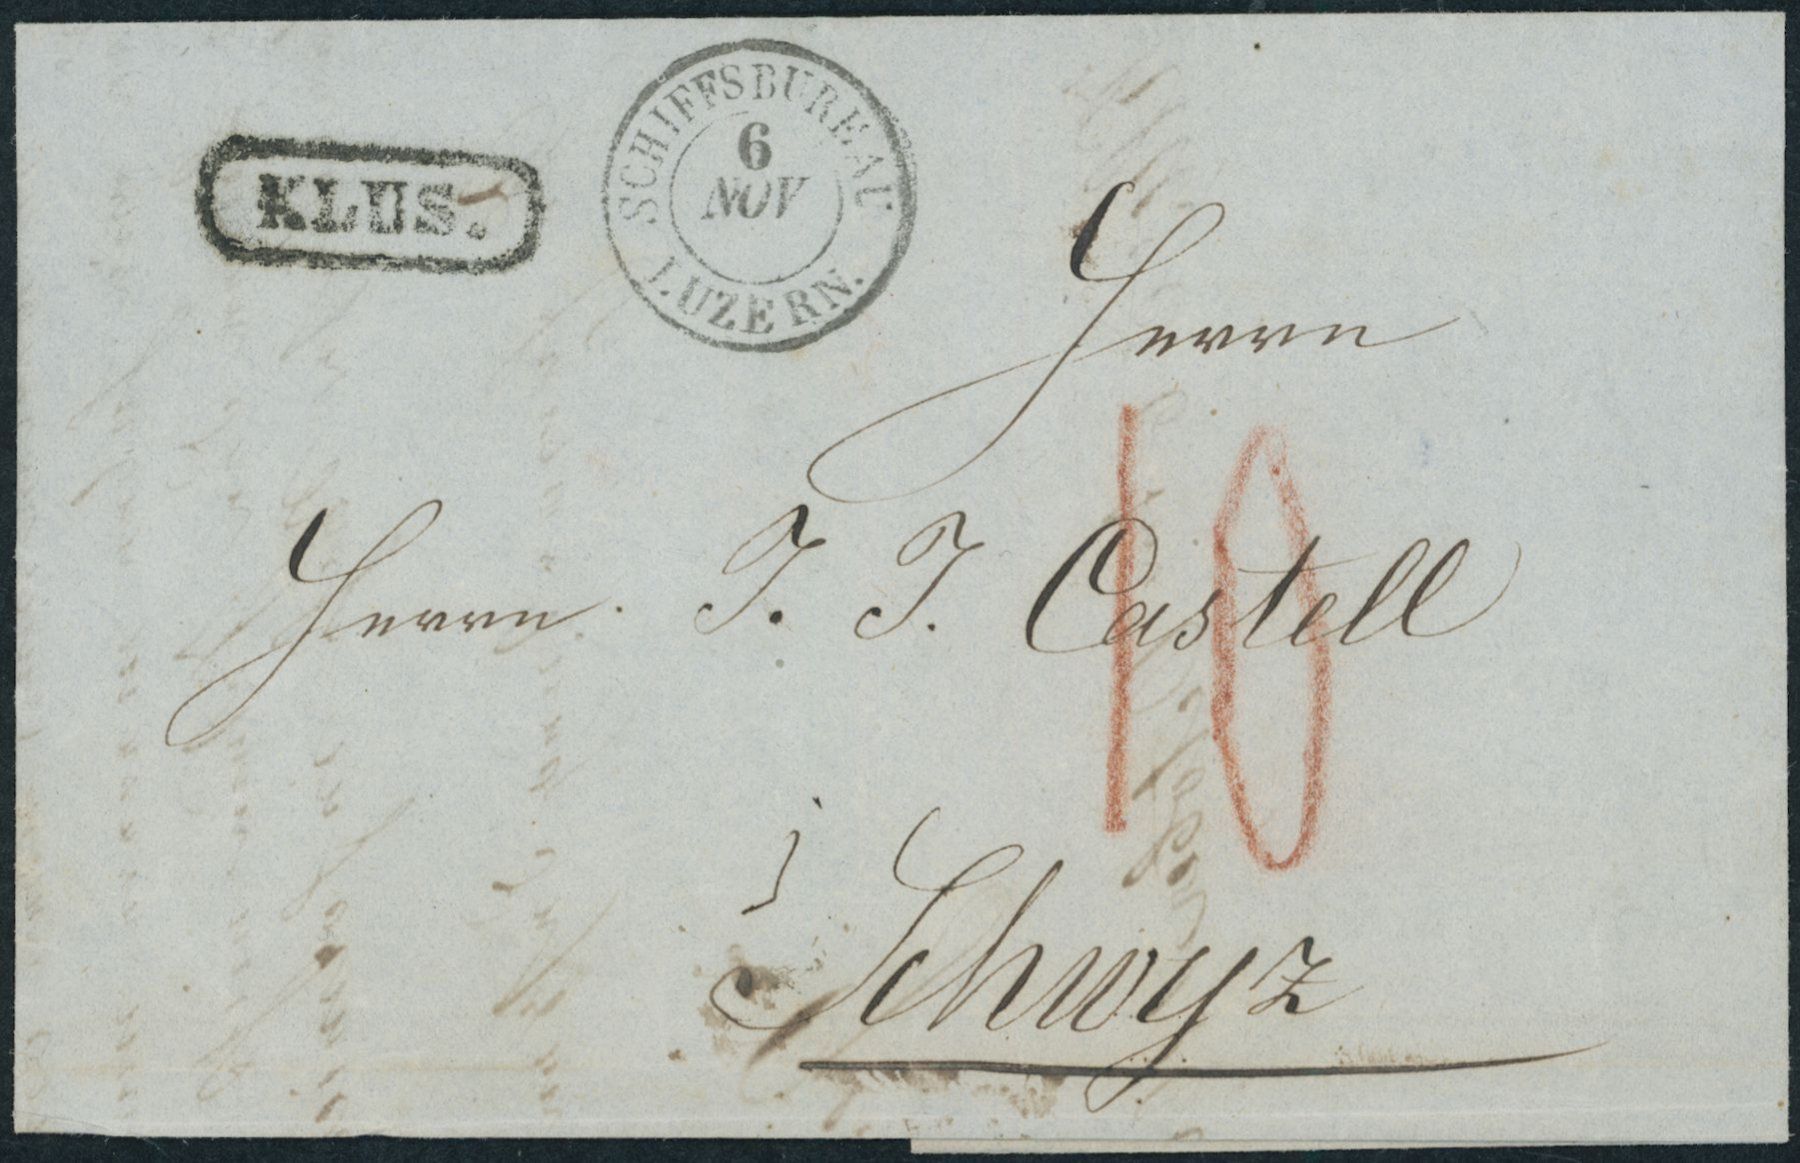 KLUS.
SCHIFFSBUREAU
6
NOV
LUZERN.
Herrn
Herrn. J. J. Castell
10
Schwyz